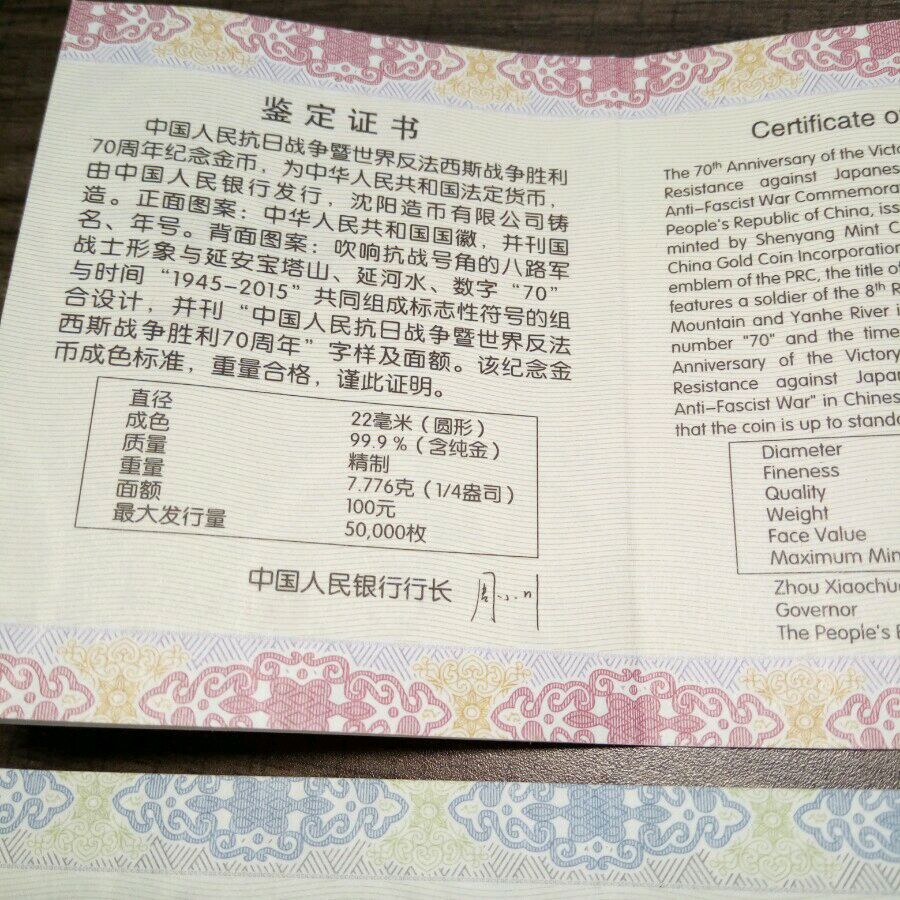 鉴定证书
中国人民抗日战争暨世界反法西斯战争胜利
70周年纪念金币，为中华人民共和国法定货币，
由中国人民银行发行，沈阳造币有限公司铸
造。正面图案：中华人民共和国国徽，并刊国
名、年号。背面图案：吹响抗战号角的八路军
战士形象与延安宝塔山、延河水、数字“70”
与时间“1945-2015”共同组成标志性符号的组
合设计，并刊“中国人民抗日战争暨世界反法
西斯战争胜利70周年”字样及面额。该纪念金
币成色标准，重量合格，谨此证明。
直径 22毫米（圆形）
成色 99.9％（含纯金）
质量 精制
重量 7.776克（1/4盎司）
面额 100元
最大发行量 50,000枚
中国人民银行行长 周小川
Certificate o
The 70th Anniversary of the Victo
Resistance against Japanes
Anti-Fascist War Commemora
People's Republic of China, iss
minted by Shenyang Mint C
China Gold Coin Incorporation
emblem of the PRC, the title of
features a soldier of the 8th R
Mountain and Yanhe River i
number "70" and the time
Anniversary of the Victory
Resistance against Japa
Anti-Fascist War" in Chines
that the coin is up to stand
Diameter
Fineness
Quality
Weight
Face Value
Maximum Min
Zhou Xiaochu
Governor
The People's B